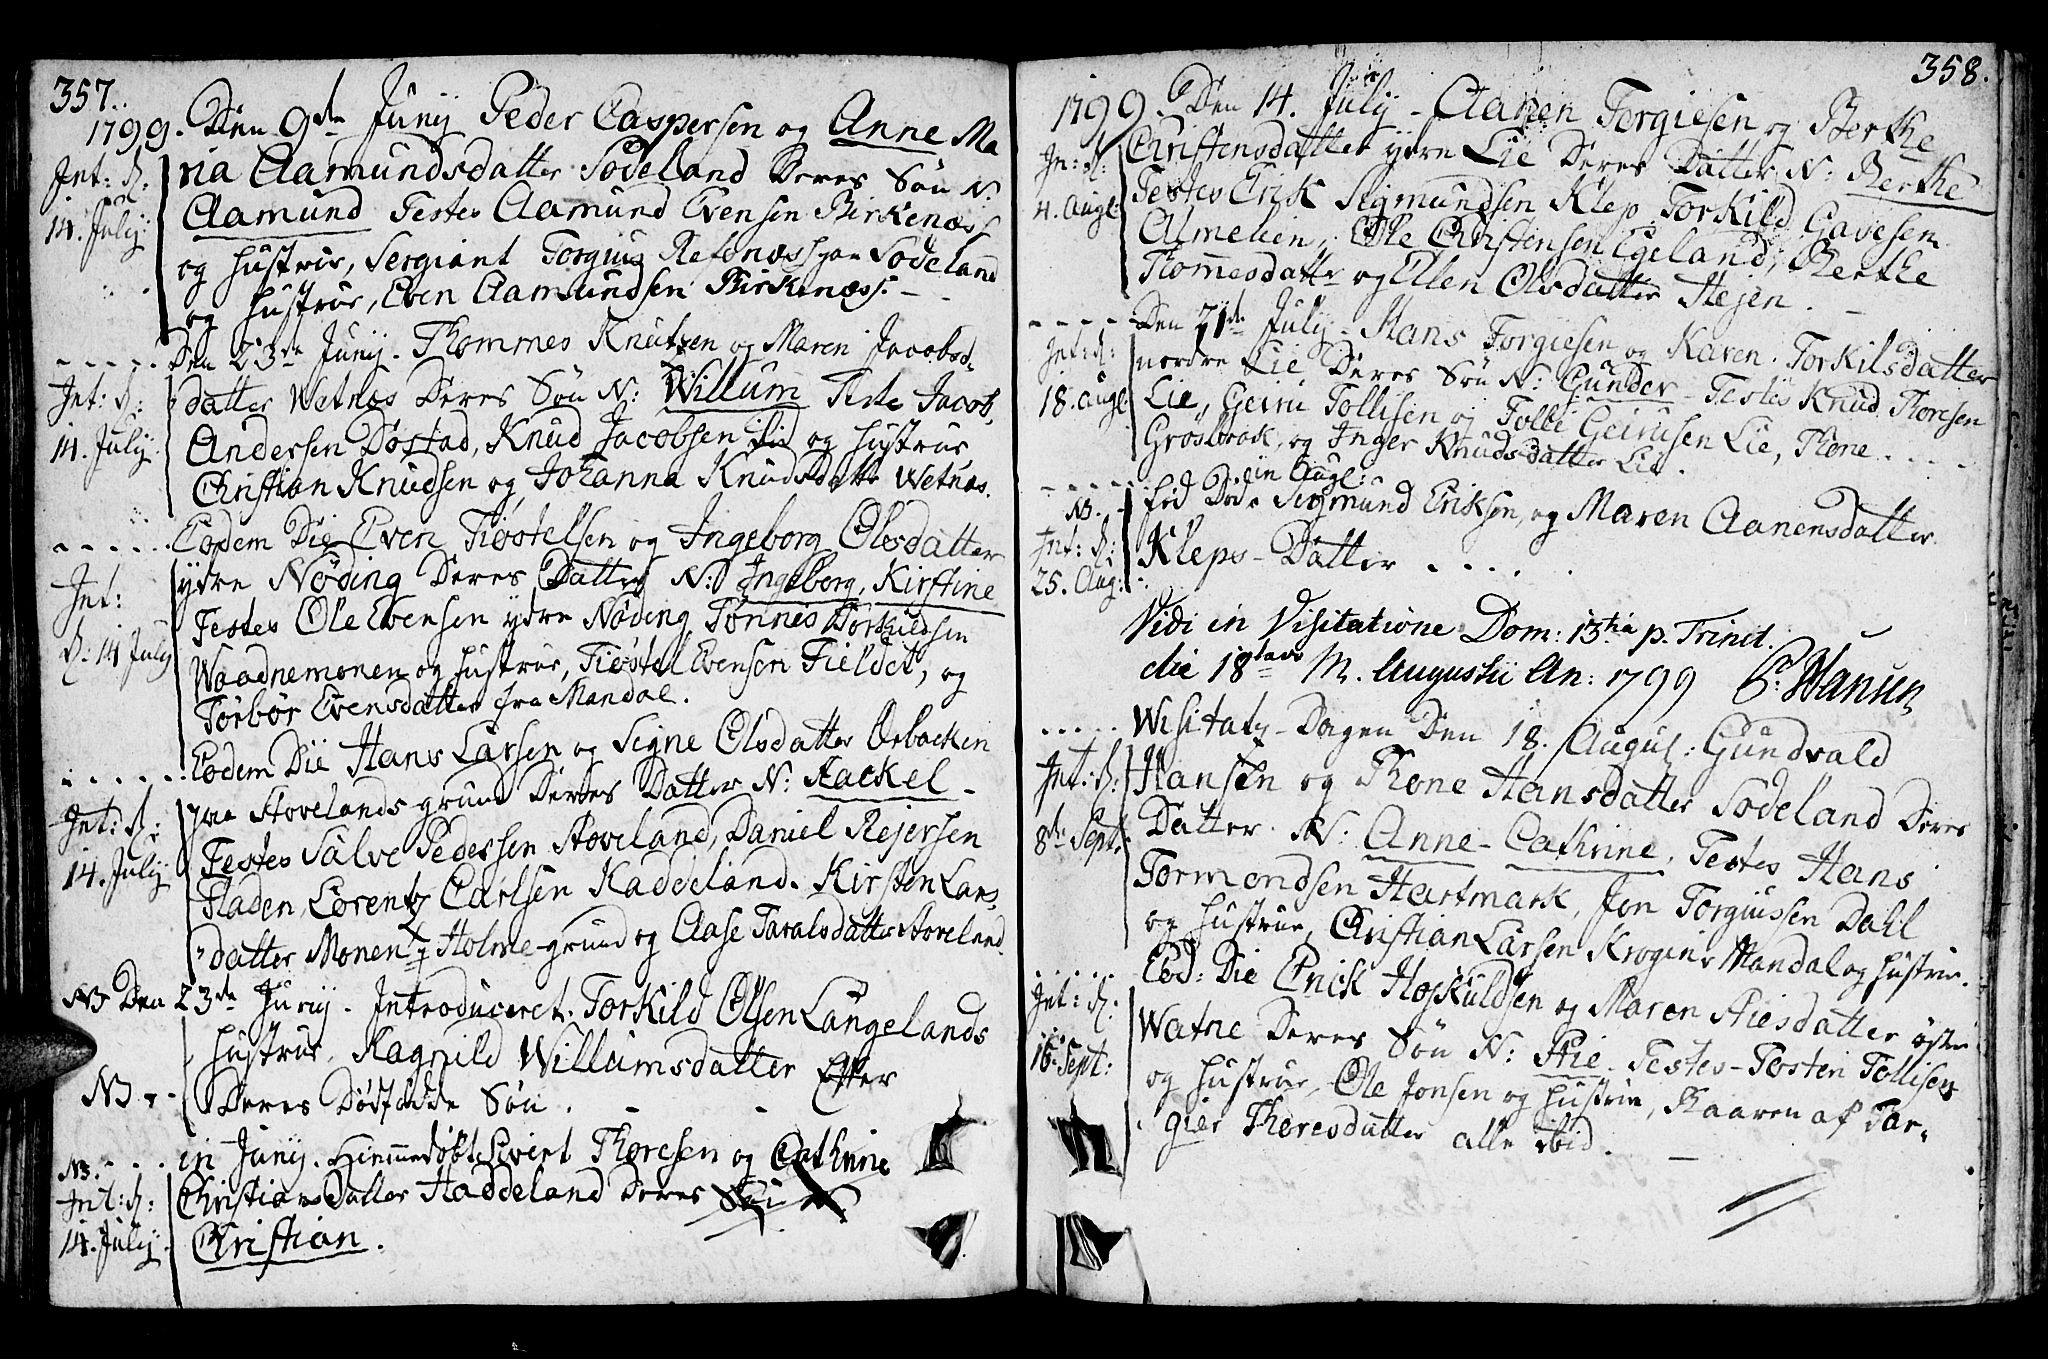 357.
1799. Den 9de Junij Peder Caspersen og Anne Ma
Int: d: 14. Julij
ria Aamundsdatter Södeland Deres Sön N:
Aamund Testes Aamund Evensen Birkenæss
og Hustrue, Sergiant Torgius Refsnæs paa Södeland
og Hustrue, Even Aamundsen Birkenæss: -
Den 23de Junij. Thommes Knutzen og Maren Jacobsd
Int: d: 14. Julij.
datter Wetnæs Deres Sön N: Willum Teste Jacob
Andersen Döstad, Knud Jacobsen ibid og Hustrue
Christian Knudsen og Johanna Knudsdatter Wetnæs.
Eodem Die Even Tiøstelsen og Ingeborg Olesdatter
Int: d: 14 July
ydre Nöding Deres Datter N: Ingeborg Kirstine
Testes Ole Evensen ydre Nöding Tønnis Torkildsen
Waadnemonen og Hustrue, Tiøstel Evensen Fieldet, og
Torbör Evensdatter fra Mandal.
Eodem Die Hans Larsen og Signe Olsdatter Orbackin
Int: d: 14. Julij
paa Stovelands-grund Deres Datter N: Rackel -
Testes Salve Pedersen Stoveland, Daniel Rejersen
Fladen, Lorentz Carlsen Kaddeland. Kirsten Lars-
datter Monen Holme-grund og Aase Taralsdatter Stoveland
NB Den 23de Junij. Introduceret. Torkild Olsen Langelands
NB - -
Hustrue, Ragnild Willumsdatter Efter
Deres Dödfödde Sön. - -
NB. - - -
in Junij. Hiemmedöbt Sivert Thoresen og Cathrine
Int: d: 14. Julij
Christians Datter Haddeland Deres Sön N.
Christian.
358.
1799. Den 14. Julij - Aanen Torgiesen og Berthe
In: d: 4. Augt
Christensdatter ydre Lie Deres Datter N: Berthe
Testes Erik Sigmundsen Klep Torkild Gavesen
Almelien, Ole Christensen Egeland, Berthe
Thommesdattr og Ellen Olsdatter Stejen.
Den 21de Julij - Hans Torgiesen og Karen Torkilsdatter
Int: d: 18. Augt
nordre Lie Deres Sön N: Gunder - Testes Knud Thoresen
Lie, Geiru Tollisen og Tolli Geirusen Lie, Thone
Grosbroak, og Inger Knudsdatter Lie.
in Augt:
NB.
Sigmund Eriksen, og Maren Aanensdatter
Int: d: 25. Aug:
Kleps - Datter - - - -
Vidi in Visitatione Dom: 13tia p. Trinit.
die 18tavo M. Augustii An: 1799 P: Hansen
Wisitatz-Dagen Den 18. August: Gundvald
Int: d: 8de Sept:
Hansen og Thone Hansdatter Södeland Deres
Datter N: Anne-Cathrine, Testes Hans
Tormondsen Hartmark, Jon Torgiussen Dahl
og Hustrue, Christian Larsen Mandal og Hustrue.
Eod: Die Erick Hoskuldsen og Maren Aiesdatter
Int: d: 16. Sept:
Watne Deres Sön N: Testes - Tosten Tollisen
og Hustrue, Ole Jonsen og Hustrue, Kaaren af Tar-
gier Thoresdatter alle ibid. -